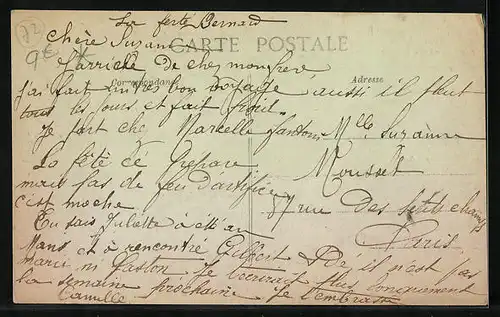 72
9€
La ferté Bernard
Chère Suzanne
CARTE POSTALE
J'arrive de chez mon frère
Correspondance
Adresse
j'ai fait un très bon voyage aussi il pleut
tous les jours et fait froid.
je part chez Marcelle
Mlle Suzanne
La fête ce prépare
Mousset
mais pas de feu d'artifice
c'est moche
37 rue des Petits champs
Paris
Tu sais Juliette a été au
Mans et a rencontré Gilbert il n'est pas
marié ni Gaston. je t'écrirai plus longuement
la semaine prochaine je t'embrasse
Camille